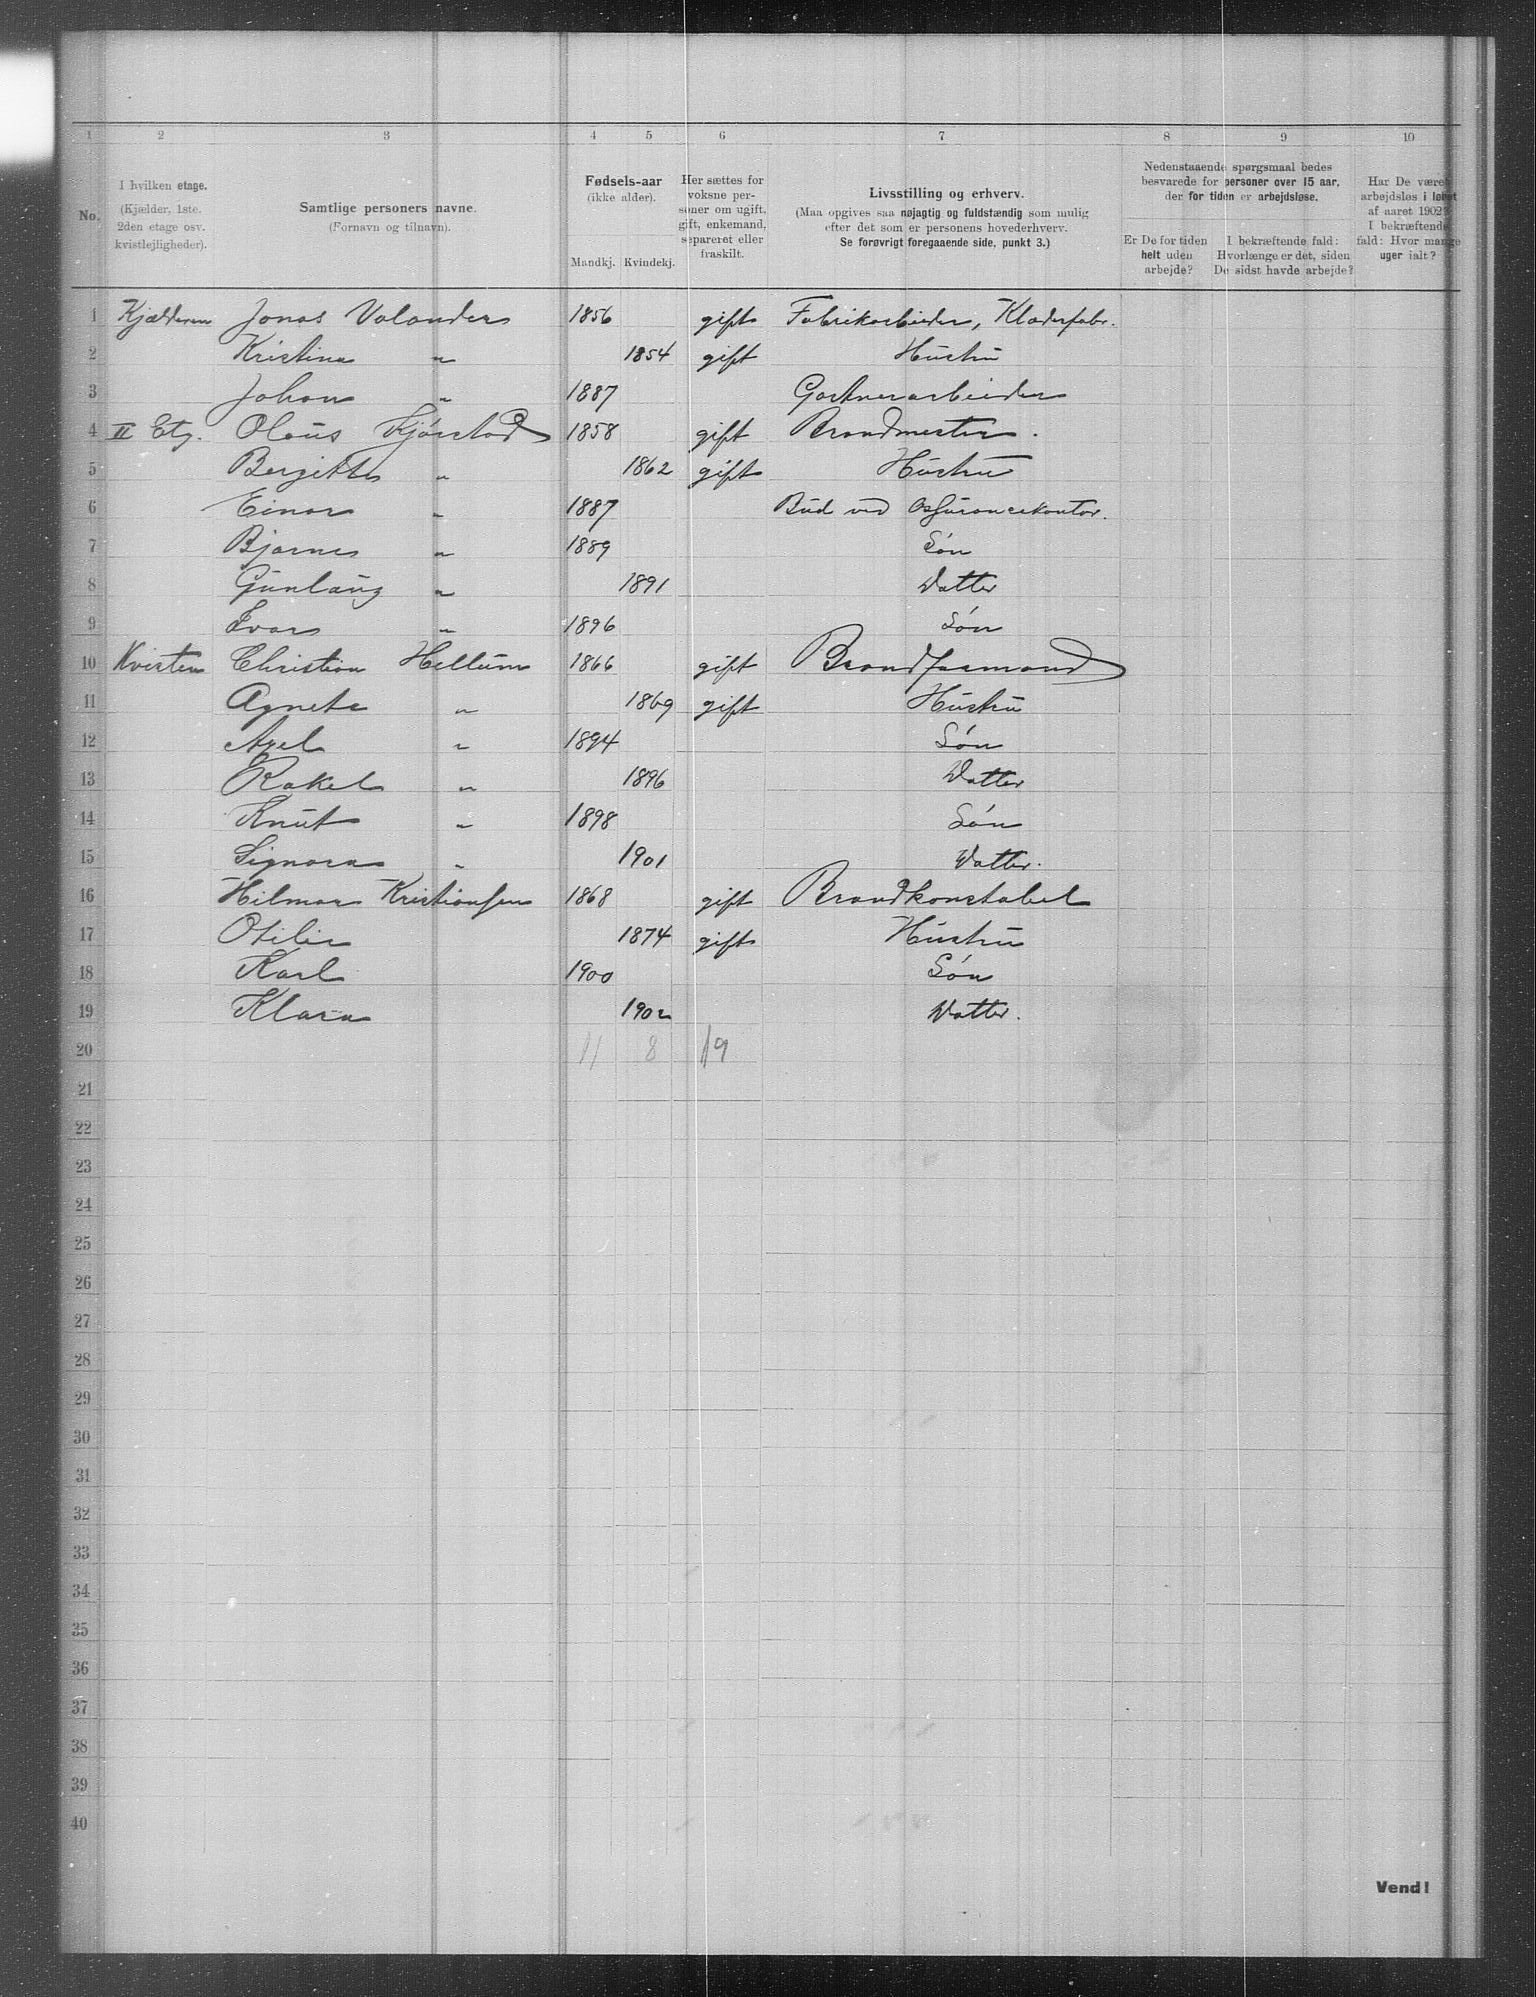 1 2 3 4 5 6 7 8 9 10
No.
I hvilken etage.
(Kjælder, 1ste.
2den etage osv.
kvistlejligheder).
Samtlige personers navne.
(Fornavn og tilnavn).
Fødsels-aar
(ikke alder).
Mandkj. Kvindekj.
Her sættes for
voksne per-
soner om ugift,
gift, enkemand,
separeret eller
fraskilt.
Livsstilling og erhverv.
(Maa opgives saa nøjagtig og fuldstændig som mulig
efter det som er personens hovederhverv.
Se forøvrigt foregaaende side, punkt 3.)
Nedenstaaende spørgsmaal bedes
besvarede for personer over 15 aar,
der for tiden er arbejdsløse.
Er De for tiden
helt uden
arbejde?
I bekræftende fald:
Hvorlænge er det, siden
De sidst havde arbejde?
Har De været
arbejdsløs i løbet
af aaret 1902?
I bekræftende
fald: Hvor mange
uger ialt?
1 Kjælderen Jonas Valander 1856 gift Fabrikarbieder, Klæderfabr.
2 Kristina " 1854 gift Hustru
3 Johan " 1887 Gartnerarbeider
4 II Etg. Olaus Kjørstad 1858 gift Brandmester.
5 Bergitte " 1862 gift Hustru
6 Einar " 1887 Bud ved Assurancekontor.
7 Bjarne " 1889 Søn
8 Gunlaug " 1891 Datter
9 Ivar " 1896 Søn
10 Kvisten Christian Hellum 1866 gift Brandformand
11 Agnete " 1869 gift Hustru
12 Axel " 1894 Søn
13 Rakel " 1896 Datter
14 Knut " 1898 Søn
15 Signora " 1901 Datter.
16 Hilmar Kristiansen 1868 gift Brandkonstabel
17 Otilie 1874 gift Hustru
18 Karl 1900 Søn
19 Klara 1902 Datter.
20 11 8 19
21
22
23
24
25
26
27
28
29
30
31
32
33
34
35
36
37
38
39
40
Vend!